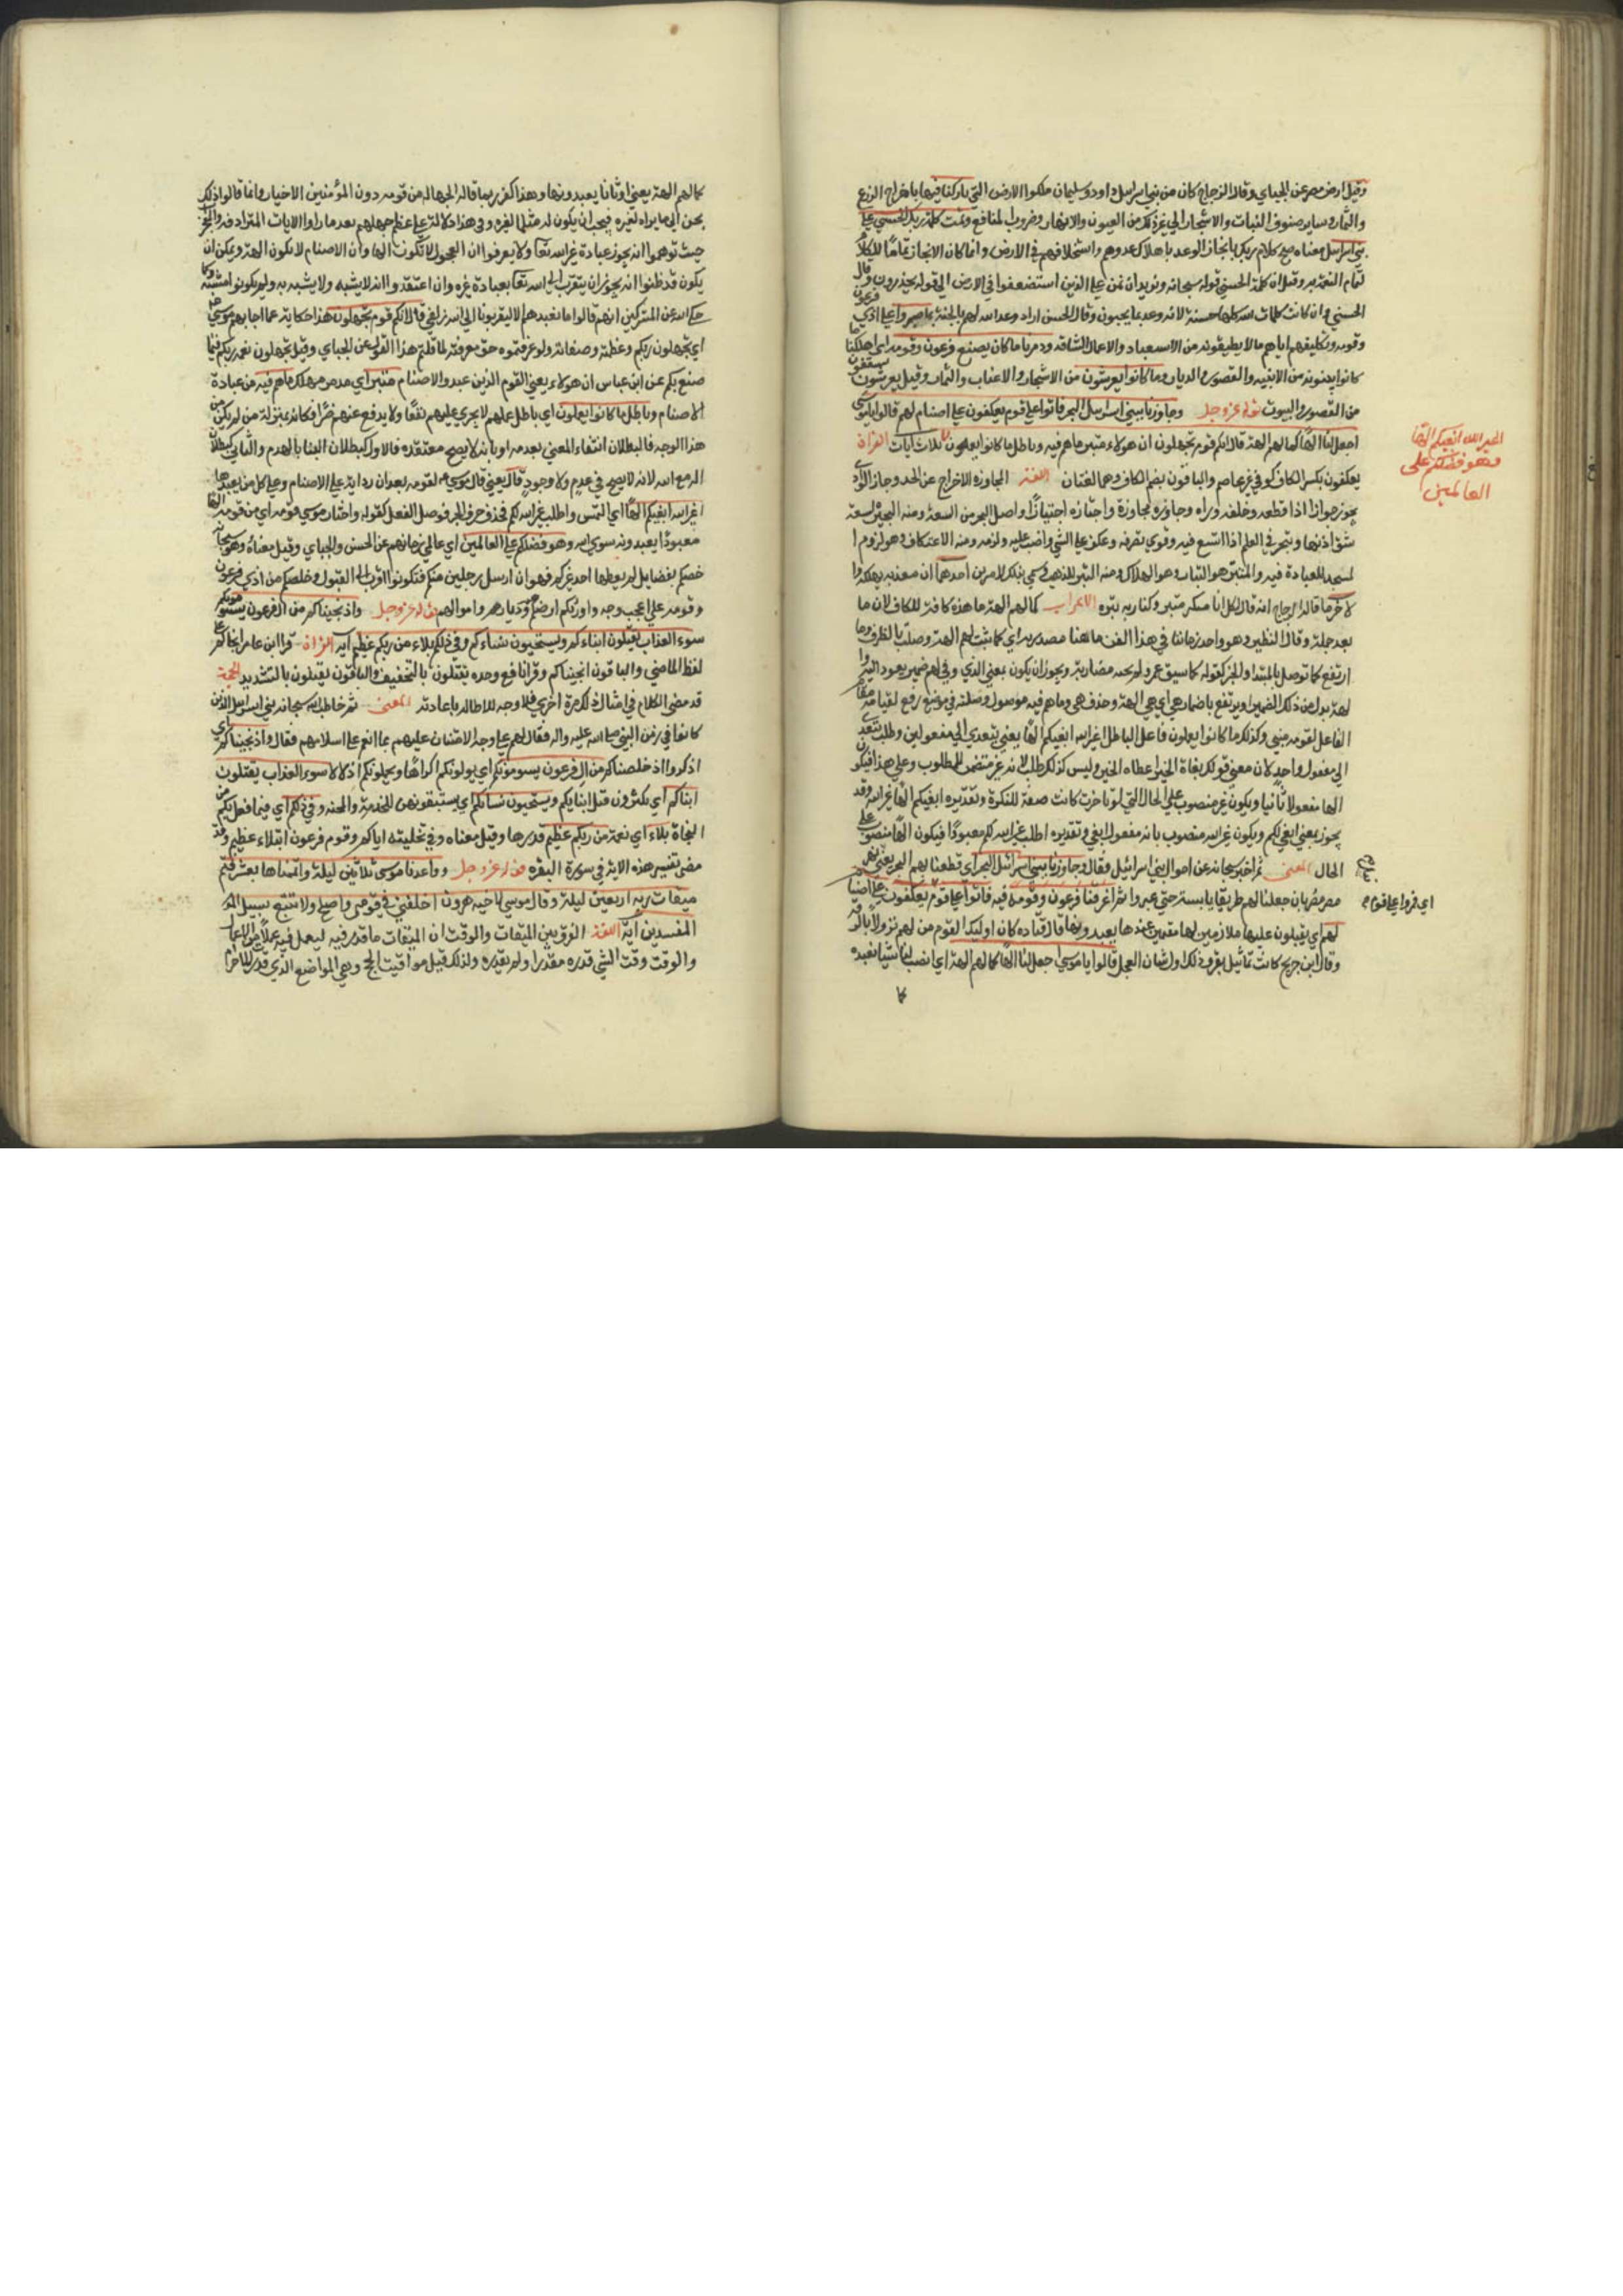 وقيل ارض مصر عن الجباي وقال الزجاج كان من بني اسرايل داود وسليمان ملكوا الارض التي باركنا فيها باخراج الزرع
والثمار وساير صنوف النبات والاشجار الي غير ذلك من العيون والانهار وضروب المنافع وتمت كلمة ربك الحسني علي
بني اسرايل معناه صح كلام ربك بانجاز الوعد باهلاك عدوهم واستخلافهم في الارض وانما كان الانجاز تماما للكلام
لتمام النعمة به وقيل ان كلمة الحسني قوله سبحانه ونريد ان نمن علي الذين استضعفوا في الارض الي قوله يحذرون وقال
الحسني وان كانت كلمات الله كلها حسنة لانه وعد بما يحبون وقال الحسن اراد وعد الله لهم بالجنة بما صبروا علي اذي فرعون
وقومه وتكليفهم اياهم ما لا يطيقونه من الاستعباد والاعمال الشاقه ودمرنا ما كان يصنع فرعون وقومه اي اهلكنا ما
كانوا يبنونه من الابنيه والقصور والديار وما كانوا يعرشون من الاشجار والاعناب والثمار وقيل يعرشون يسقفون
من القصور والبيوت قوله عز وجل وجاوزنا ببني اسرايل البحر فاتوا علي قوم يعكفون علي اصنام لهم قالوا يا موسي
اجعل لنا الها كما لهم الهة قال انكم قوم تجهلون ان هولاء متبر ما هم فيه وباطل ما كانوا يعملون ثلاث ايات القراة
يعكفون بكسر الكاف كوفي غير عاصم والباقون بضم الكاف وهما لغتان اللغة المجاوزه الاخراج عن الحد وجاز الوادي
يجوز جوازا اذا قطعه وخلفه وراه وجاوزه مجاوزة واجتازه اجتيازا واصل البحر من السعة ومنه البحيرة لسعة
شق اذنها وتبحر في العلم اذا اتسع فيه وقوي تصرفه وعكف علي الشي واضب عليه ولزمه ومنه الاعتكاف وهو لزوم ا
لمسجد للعبادة فيه والمتبر هو التبار وهو الهلاك ومنه التبر للذهب وسمي بذلك لامرين احدهما ان معدنه يهلكه وا
لاخر ما قاله الزجاج انه قال لكل انا مكسر متبر وكسارته تبره الاعراب كما لهم الهة ما هذه كافة للكاف لان ما
بعد جملة وقال
ارتفع كما توصل بالمبتدا والخبر كقوله كما سيف عمرو لم تخنه مضاربه ويجوز ان يكون بمعني الذي وفي لهم ضمير يعود اليه وا
لهة بدل من ذلك الضمير او يرتفع باضمار هي اي هي الهة وحذف هي وما هم فيه موصول وصلته في موضع رفع لقيامه مقام
الفاعل لقوله متبر وكذلك ما كانوا يعملون فاعل الباطل اغير الله ابغيكم الها بغي يتعدي الي مفعولين وطلب يتعدي
الي مفعول واحد لان معني قولك بغاه الخير اعطاه الخير وليس كذلك طلب لانه غير متضمن للمطلوب وعلي هذا فيكون
الها مفعولا ثانيا ويكون غير منصوب علي الحال التي لو تاخرت كانت صفة للنكرة وتقديره ابغيكم الها غير الله وقد
يجوز بمعني ابغي لكم ويكون غير الله منصوب بانه مفعول ابغي وتقديره اطلب غير الله لكم معبودا فيكون الها منصوب علي
الحال المعني ثم اخبر سبحانه عن احوال بني اسرائيل فقال وجاوزنا ببني اسرائيل البحر اي قطعنا بهم البحر يعني نهر
مصر بان جعلنا لهم طريقا يابسة حتي عبروا ثم اغرقنا فرعون وقومه فيه فاتوا علي قوم يعكفون علي اصنام
لهم اي يقبلون عليها ملازمين لها مقيمين عندها يعبدونها قال قتاده كان اوليك القوم من لخم نزولا بالرقه
وقال ابن جريج كانت تماثيل بقر وذلك اول شان العجل قالوا يا موسي اجعل لنا الها كما لهم الهة اي انصب لنا شيا نعبده
كما
اغير الله ابغيكم الها
وهو فضلكم على
العالمين
اي فمروا علي قوم
كما لهم الهة يعني اوثانا يعبدونها وهذا كفر ربما قاله الجهال من قومه دون المؤمنين الاخيار وانما قالوا ذلك
حيث توهموا انه يجوز عبادة غير الله تعا ولا يعرفوا ان المجعول لا تكون الها وان الاصنام لا تكون الهة ويمكن ان
يكون قد ظنوا انه يجوز ان يتقرب الي الله تعا بعبادة غيره وان اعتقدوا انه لا يشبه ولا يشبه به ولم يكونوا مشبهة وكما
حكي الله عن المشركين انهم قالوا ما نعبدهم الا ليقربونا الي الله زلفي قال انكم قوم تجهلون هذا حكاية عما اجابهم موسي
اي تجهلون ربكم وعظمته وصفاته ولو عرفتموه حق معرفته لما قلتم هذا القول عن الجباي وقيل تجهلون نعمة ربكم فيما
صنع بكم عن ابن عباس ان هولاء يعني القوم الذين عبدوا الاصنام متبر اي مدمر مهلك ما هم فيه من عبادة
الاصنام وباطل ما كانوا يعملون اي باطل عملهم لا يجري عليهم نفعا ولا يدفع عنهم ضرا فكانه بمنزلة من لم يكن من
هذا الوجه فالبطلان انتفاء المعني بعدمه او بانه لا يصح معتقده فالاول كبطلان البنا بالهدم والثاني كبطلان
اله مع الله لانه لا يصح في عدم ولا وجود قال يعني قال موسي لقومه بعد ان
اغير الله ابغيكم الها اي التمس واطلب غير الله لكم فحذف حرف الجر فوصل الفعل كقوله واختار موسي قومه اي من قومه الها
معبودا يعبدونه سوي الله وهو فضلكم علي العالمين اي عالمي زمانهم عن الحسن والجباي وقيل معناه وهو سبحانه
خصكم بفضايل لم يعطها احد غيركم فهو ان ارسل رجلين منكم فتكونوا اقرب الي القبول وخلصكم من اذي فرعون
وقومه علي اعجب وجه واورثكم ارضهم وديارهم واموالهم قوله عز وجل واذ نجيناكم من ال فرعون يسومونكم
سوء العذاب يقتلون ابناءكم ويستحيون نساءكم وفي ذلكم بلاء من ربكم عظيم ايه القراة قرا ابن عامر انجاكم علي
لفظ الماضي والباقون انجيناكم وقرا نافع وحده يقتلون بالتخفيف والباقون يقتلون بالتشديد الحجة
قد مضي الكلام في امثال ذلك مرة اخري فلا وجه للاطاله باعادته المعني ثم خاطب الله سبحانه بني اسرايل الذين
كانوا في زمن النبي صلي الله عليه واله فقال لهم علي وجه الامتنان عليهم بما انعم علي اسلافهم فقال واذ نجيناكم اي
اذكروا اذ خلصناكم من ال فرعون يسومونكم اي يولونكم اكراها ويحملونكم اذلالا سوء العذاب يقتلون
ابناكم اي يكثرون قتل ابنايكم ويستحيون نساءكم اي يستبقونهن للخدمة والمحنه وفي ذلكم اي فيما فعل بكم من
النجاة بلاء اي نعمة من ربكم عظيم قدرها وقيل معناه وفي تخليته اياكم وقوم فرعون ابتلاء عظيم وقد
مضي تفسير هذه الاية في سورة البقره قوله عز وجل وواعدنا موسي ثلاثين ليلة واتممناها بعشر فتم
ميقات ربه اربعين ليلة وقال موسي لاخيه هرون اخلفني في قومي واصلح ولا تتبع سبيل
المفسدين ايه اللغة الفرق بين الميقات والوقت ان الميقات ما قدر فيه ليعمل فيه عملا من الاعمال
والوقت وقت الشي قدره مقدرا ولم يقدره ولذلك قيل مواقيت الحج وهي المواضع الذي قدر للاحرام